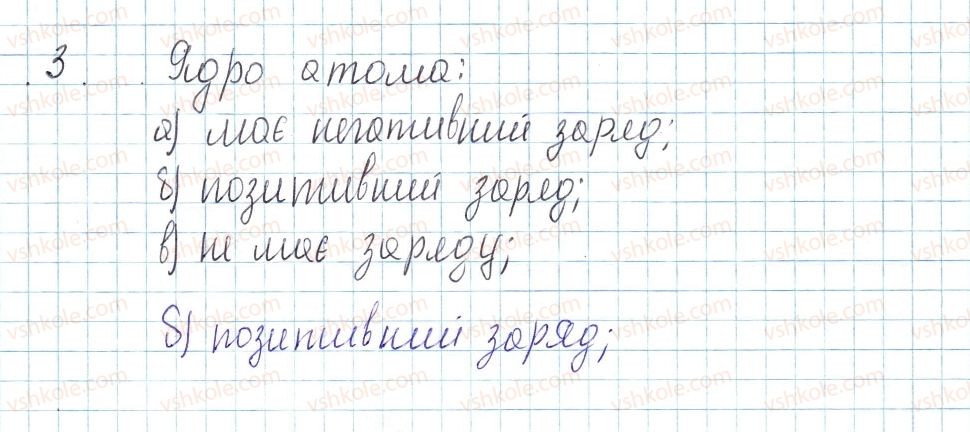 3. Ядро атома:
а) має негативний заряд;
б) позитивний заряд;
в) не має заряду;
б) позитивний заряд;